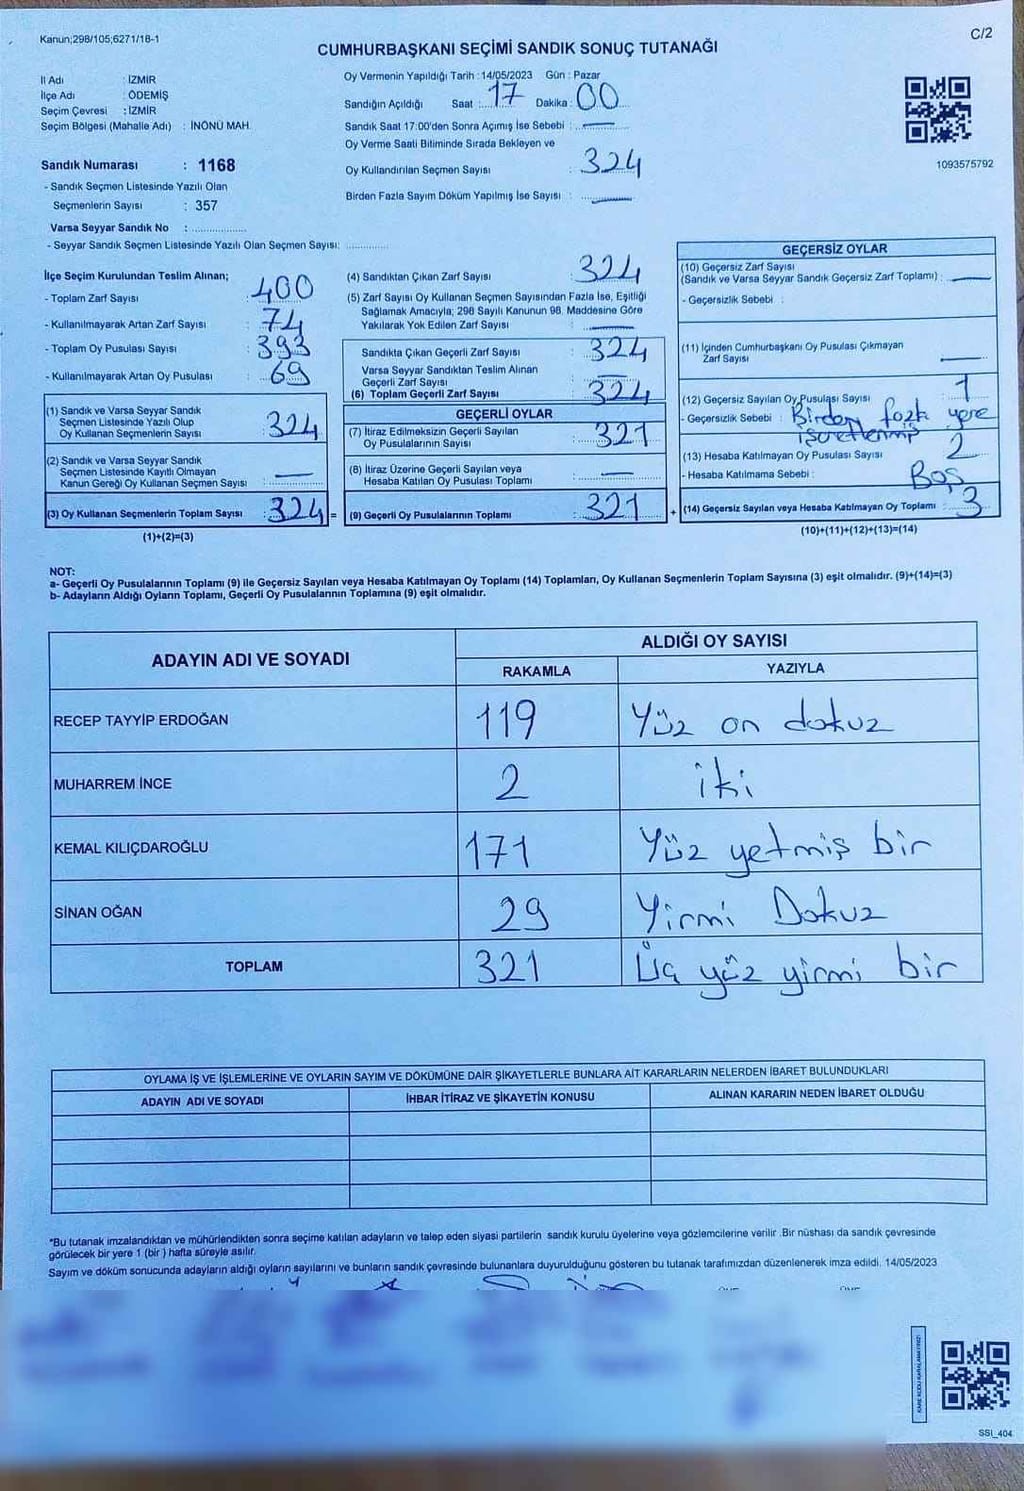 Kanun;298/105;6271/18-1
C/2
CUMHURBAŞKANI SEÇİMİ SANDIK SONUÇ TUTANAĞI
İl Adı : İZMİR
İlçe Adı : ÖDEMİŞ
Seçim Çevresi : İZMİR
Seçim Bölgesi (Mahalle Adı) : İNÖNÜ MAH.
Oy Vermenin Yapıldığı Tarih : 14/05/2023 Gün : Pazar
Sandığın Açıldığı Saat : 17 Dakika : 00
Sandık Saat 17:00'den Sonra Açımış İse Sebebi : —
Oy Verme Saati Bitiminde Sırada Bekleyen ve
Oy Kullandırılan Seçmen Sayısı : 324
Birden Fazla Sayım Döküm Yapılmış İse Sayısı : —
1093575792
Sandık Numarası : 1168
- Sandık Seçmen Listesinde Yazılı Olan
Seçmenlerin Sayısı : 357
Varsa Seyyar Sandık No : ..................
- Seyyar Sandık Seçmen Listesinde Yazılı Olan Seçmen Sayısı: .............
İlçe Seçim Kurulundan Teslim Alınan;
- Toplam Zarf Sayısı : 400
- Kullanılmayarak Artan Zarf Sayısı : 74
- Toplam Oy Pusulası Sayısı : 393
- Kullanılmayarak Artan Oy Pusulası : 69
(1) Sandık ve Varsa Seyyar Sandık
Seçmen Listesinde Yazılı Olup
Oy Kullanan Seçmenlerin Sayısı : 324
(2) Sandık ve Varsa Seyyar Sandık
Seçmen Listesinde Kayıtlı Olmayan
Kanun Gereği Oy Kullanan Seçmen Sayısı : —
(3) Oy Kullanan Seçmenlerin Toplam Sayısı : 324 =
(1)+(2)=(3)
(4) Sandıktan Çıkan Zarf Sayısı : 324
(5) Zarf Sayısı Oy Kullanan Seçmen Sayısından Fazla İse, Eşitliği
Sağlamak Amacıyla; 298 Sayılı Kanunun 98. Maddesine Göre
Yakılarak Yok Edilen Zarf Sayısı : —
Sandıkta Çıkan Geçerli Zarf Sayısı : 324
Varsa Seyyar Sandıktan Teslim Alınan
Geçerli Zarf Sayısı : —
(6) Toplam Geçerli Zarf Sayısı : 324
GEÇERLİ OYLAR
(7) İtiraz Edilmeksizin Geçerli Sayılan
Oy Pusulalarının Sayısı : 321
(8) İtiraz Üzerine Geçerli Sayılan veya
Hesaba Katılan Oy Pusulası Toplamı : —
(9) Geçerli Oy Pusulalarının Toplamı : 321 +
GEÇERSİZ OYLAR
(10) Geçersiz Zarf Sayısı
(Sandık ve Varsa Seyyar Sandık Geçersiz Zarf Toplamı) : —
- Geçersizlik Sebebi :
(11) İçinden Cumhurbaşkanı Oy Pusulası Çıkmayan
Zarf Sayısı : —
(12) Geçersiz Sayılan Oy Pusulası Sayısı : 1
- Geçersizlik Sebebi : Birden fazla yere
işaretlenmiş
(13) Hesaba Katılmayan Oy Pusulası Sayısı : 2
- Hesaba Katılmama Sebebi : Boş
(14) Geçersiz Sayılan veya Hesaba Katılmayan Oy Toplamı : 3
(10)+(11)+(12)+(13)=(14)
NOT:
a- Geçerli Oy Pusulalarının Toplamı (9) ile Geçersiz Sayılan veya Hesaba Katılmayan Oy Toplamı (14) Toplamları, Oy Kullanan Seçmenlerin Toplam Sayısına (3) eşit olmalıdır. (9)+(14)=(3)
b- Adayların Aldığı Oyların Toplamı, Geçerli Oy Pusulalarının Toplamına (9) eşit olmalıdır.
ADAYIN ADI VE SOYADI
ALDIĞI OY SAYISI
RAKAMLA YAZIYLA
RECEP TAYYİP ERDOĞAN 119 Yüz on dokuz
MUHARREM İNCE 2 iki
KEMAL KILIÇDAROĞLU 171 Yüz yetmiş bir
SİNAN OĞAN 29 Yirmi Dokuz
TOPLAM 321 Üç yüz yirmi bir
OYLAMA İŞ VE İŞLEMLERİNE VE OYLARIN SAYIM VE DÖKÜMÜNE DAİR ŞİKAYETLERLE BUNLARA AİT KARARLARIN NELERDEN İBARET BULUNDUKLARI
ADAYIN ADI VE SOYADI İHBAR İTİRAZ VE ŞİKAYETİN KONUSU ALINAN KARARIN NEDEN İBARET OLDUĞU
*Bu tutanak imzalandıktan ve mühürlendikten sonra seçime katılan adayların ve talep eden siyasi partilerin sandık kurulu üyelerine veya gözlemcilerine verilir .Bir nüshası da sandık çevresinde
görülecek bir yere 1 (bir ) hafta süreyle asılır.
Sayım ve döküm sonucunda adayların aldığı oyların sayılarını ve bunların sandık çevresinde bulunanlara duyurulduğunu gösteren bu tutanak tarafımızdan düzenlenerek imza edildi. 14/05/2023
KARE KODU KARALAMAYINIZ!
SSI_404